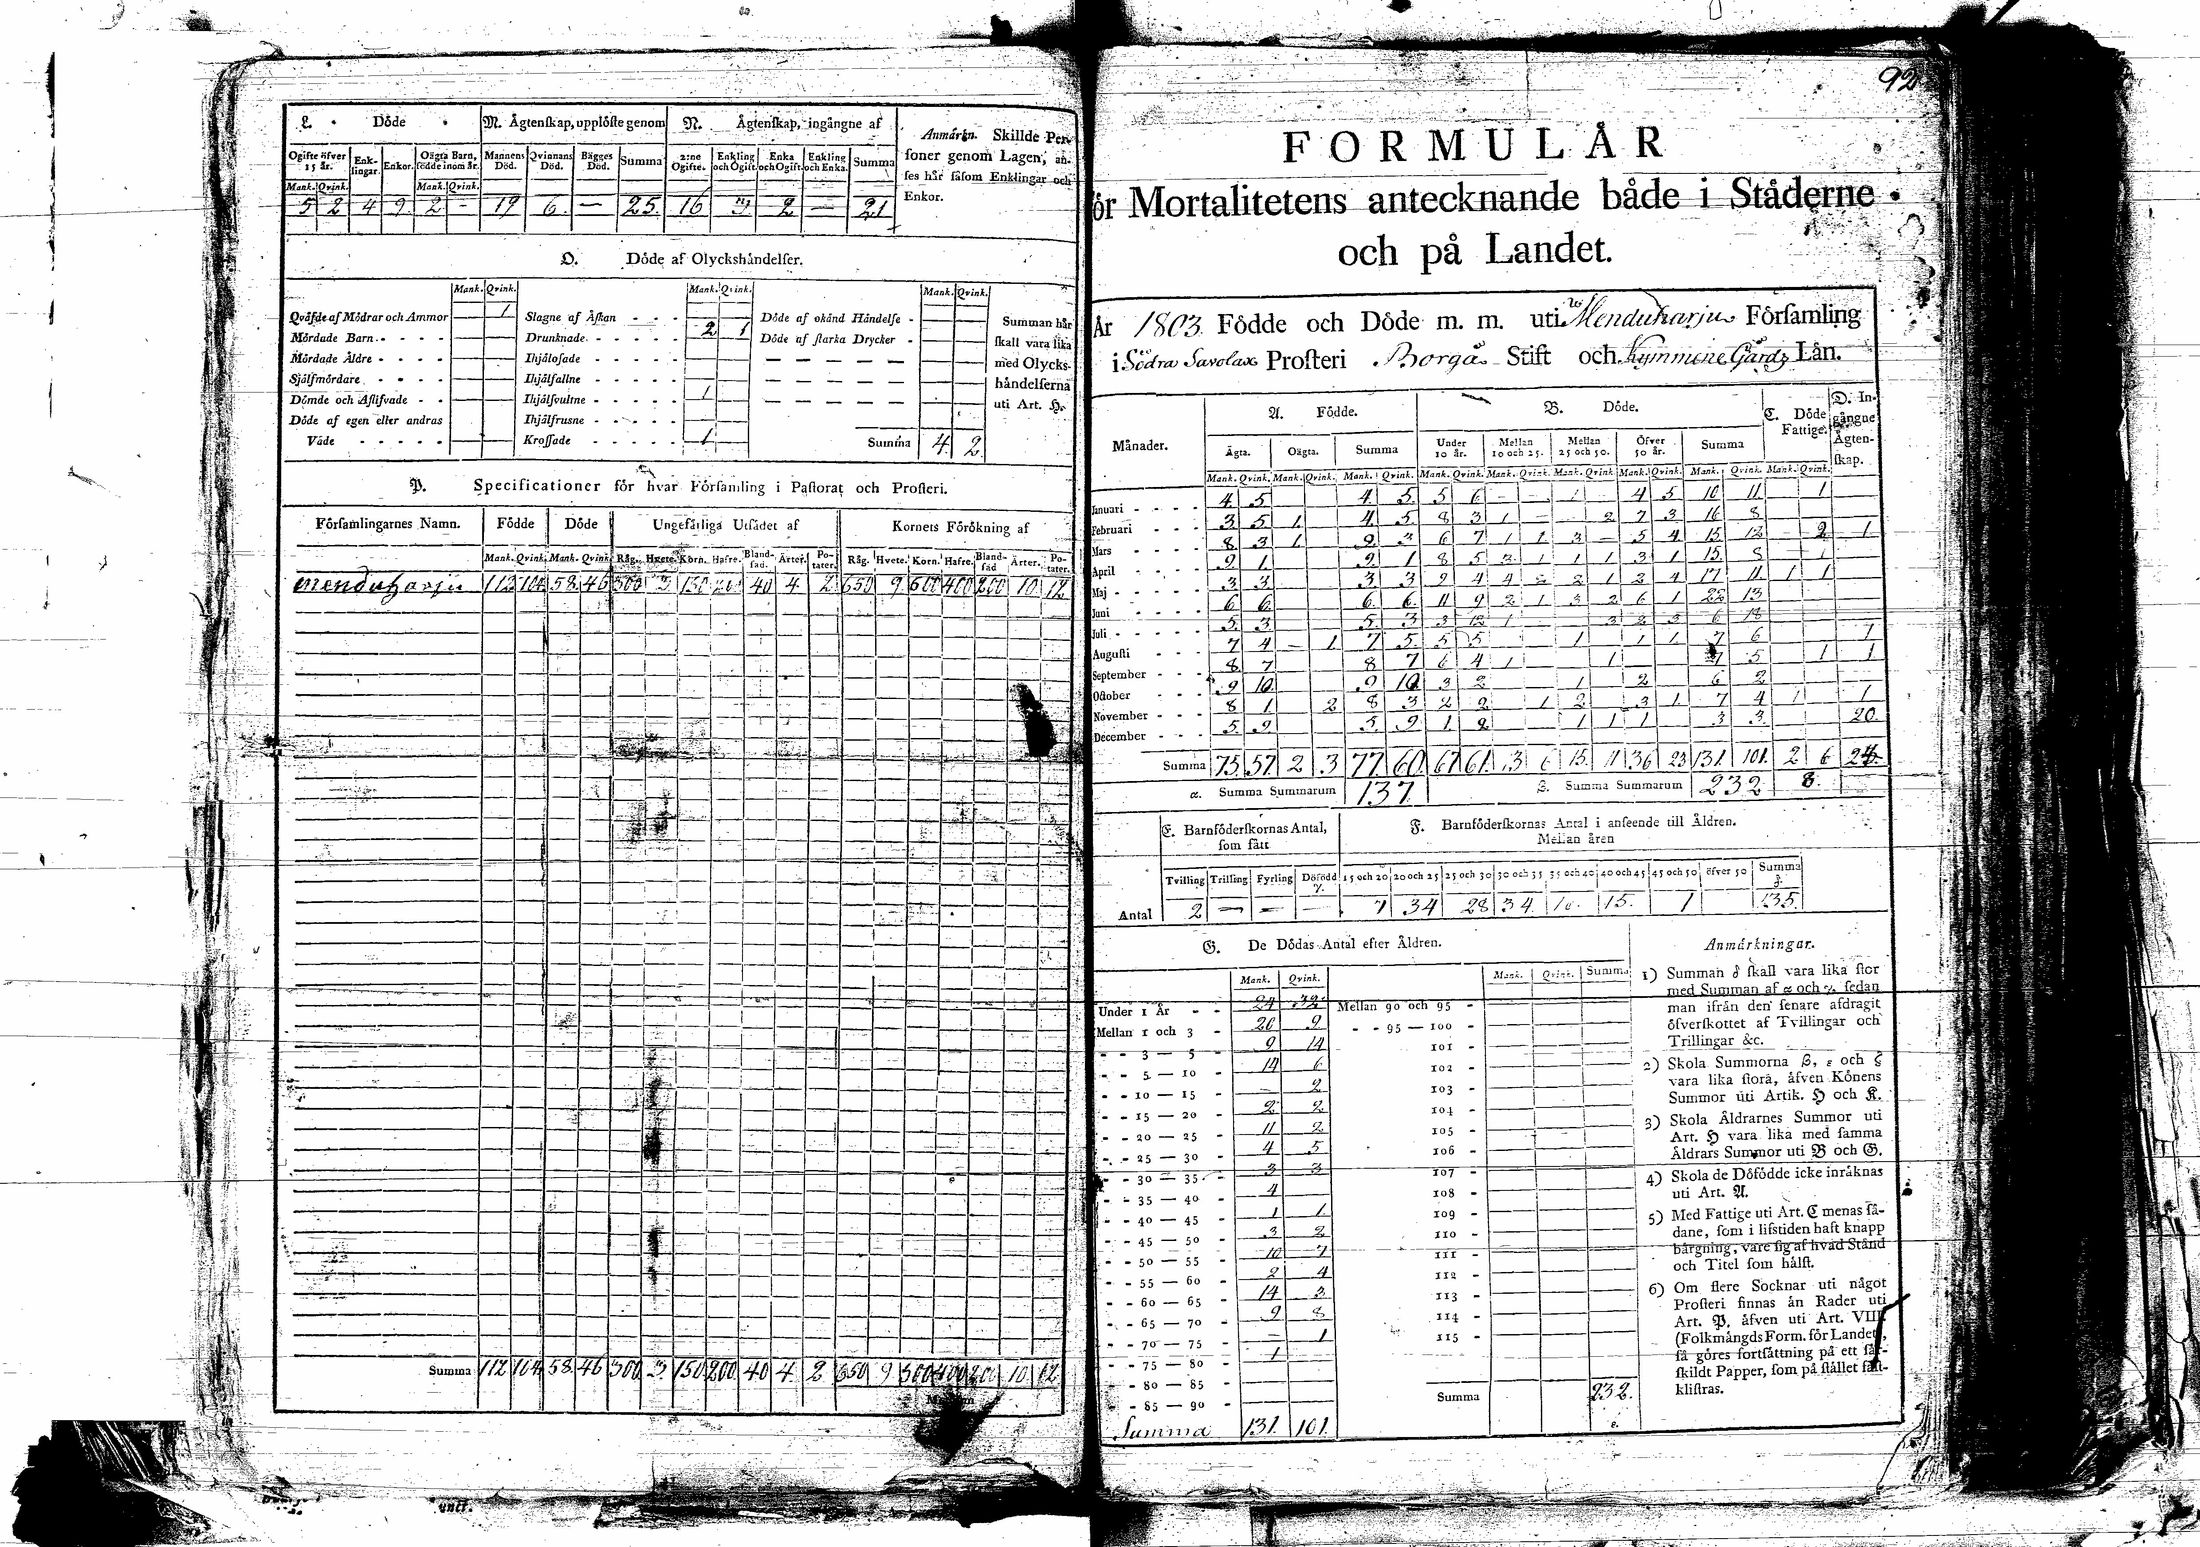 L. Döde
M. Ägtenskap, upplöste genom
N. Ägtenskap, ingångne af
Anmärkn. Skillde Per-
soner genom Lagen, an-
ses här såsom Enklingar och
Enkor.
Ogifte öfver 15 år. Enk-lingar. Enkor. Oägta Barn, födde inom år. Mannens Död. Qvinnans Död. Bägges Död. Summa 2:ne Ogifte. Enkling och Ogift. Enka och Ogift. Enkling och Enka. Summa
Mank. Qvink. Mank. Qvink.
5 2 4 9 2 - 19 6 — 25. 16 3 2 — 21
O. Döde af Olyckshändelser.
Mank. Qvink. Mank. Qvink. Mank. Qvink.
Qväfde af Mödrar och Ammor 1 Slagne af Åskan - - - Döde af okänd Händelse -
Mördade Barn - - - - Drunknade - - - - 2 1 Döde af starka Drycker -
Mördade Äldre - - - - Ihjälosade - - - - -
Själfmördare - - - - Ihjälfallne - - - - -
Dömde och Aflifvade - - Ihjälsvultne - - - - - 1
Döde af egen eller andras Ihjälfrusne - - - - -
Våde - - - - - Krossade - - - - - 1 Summa 4. 2.
Summan här
skall vara lika
med Olycks-
händelserna
uti Art. H.
P. Specificationer för hvar Församling i Pastorat och Prosteri.
Församlingarnes Namn. Födde Döde Ungefärliga Utsädet af Kornets Förökning af
Mank. Qvink. Mank. Qvink. Råg. Hvete. Korn. Hafre. Bland-säd. Ärter. Po-tater. Råg. Hvete. Korn. Hafre. Bland-säd Ärter. Po-tater.
Menduharju 112 104 58. 46 300 3 150 200 40 4 2 650 9 600 400 200 10. 12
Summa 112 104 58. 46 300 3. 150 200 40 4. 2 650 9 400 200 10. 12
92
FORMULÄR
för Mortalitetens antecknande både i Städerne
och på Landet.
År 1803. Födde och Döde m. m. uti Menduharju Församling
i Södra Savolax Prosteri Borgå Stift och Kymmene Gårds Län.
Månader. A. Födde. B. Döde. C. Döde Fattige. D. In-gångne Ägten-skap.
Ägta. Oägta. Summa Under 10 år. Mellan 10 och 25. Mellan 25 och 50. Öfver 50 år. Summa
Mank. Qvink. Mank. Qvink. Mank. Qvink. Mank. Qvink. Mank. Qvink. Mank. Qvink. Mank. Qvink. Mank. Qvink. Mank. Qvink.
Januari - - - - 4 5 4. 5. 5 6 - - 1 - 4 5 10 11 1
Februari - - - 3 5 1 4 5. 8 3 1 2 7 3 16 8
Mars - - - - 8 3 1 9 3 6 7 1 1 3 - 5 4 15 12 - 2 1
April - - - - 9 1 9 1 8 5 1 1 3 1 15. 8 1
Maj - - - - - 3 3 3 3 9 4 4 2 2 1 3 4 17 11 1 1
Juni - - - - 6 6 6. 6. 11 9 2 1 3 2 6 1 22 13
Juli - - - - - 5 3 5. 3 3 12 1 3 2 3 6 18
Augusti - - - 7 4 - 1 7 5. 5 5 1 1 1 7 6 1
September - - - 8 7 8 7 6 4 1 1 5 1 1
October - - - 9 10 9 10 3 2 1 2 6 2
November - - - 8 1 2 8 3 2 2 1 2 3 1 7 4 1 1
December - - - 5 9 5. 9 1 2 1 1 1 3 3 20
Summa 75. 57. 2 3 77. 60. 67 61. 13 6 15. 11 36 23 131. 101. 2 6 24.
α. Summa Summarum 137. β. Summa Summarum 232 8.
E. Barnföderskornas Antal, som fått
F. Barnföderskornas Antal i anseende till Åldren.
Mellan åren
Tvilling Trilling Fyrling Dödfödd γ. 15 och 20 20 och 25 25 och 30 30 och 35 35 och 40 40 och 45 45 och 50 öfver 50 Summa δ.
Antal 2 — — — 7 34 28 34 16. 15. 1 135.
G. De Dödas Antal efter Åldren.
Mank. Qvink. Mank. Qvink. Summa
Under 1 År - - 24 32 Mellan 90 och 95 -
Mellan 1 och 3 - 20 9 - - 95 — 100 -
- - 3 — 5 - 9 14 101 -
- - 5 — 10 - 14 6 102 -
- - 10 — 15 - — 2 103 -
- - 15 — 20 - 2 2 104 -
- - 20 — 25 - 11 2 105 -
- - 25 — 30 - 4 5 106 -
- - 30 — 35 - 3 3 107 -
- - 35 — 40 - 4 108 -
- - 40 — 45 - 1 1 109 -
- - 45 — 50 - 3 2 110 -
- - 50 — 55 - 10 7 111 -
- - 55 — 60 - 2 4 112 -
- - 60 — 65 - 14 3 113 -
- - 65 — 70 - 9 8 114 -
- - 70 — 75 - — 1 115 -
- - 75 — 80 - 1
- - 80 — 85 -
- - 85 — 90 - Summa 232.
Summa 131. 101. ε.
Anmärkningar.
1) Summan δ skall vara lika stor
med Summan af α och γ, sedan
man ifrån den senare afdragit
öfverskottet af Tvillingar och
Trillingar &c.
2) Skola Summorna β, ε och ζ
vara lika stora, äfven Könens
Summor uti Artik. H och K.
3) Skola Åldrarnes Summor uti
Art. H vara lika med samma
Åldrars Summor uti B och G.
4) Skola de Döfödde icke inräknas
uti Art. A.
5) Med Fattige uti Art. C menas så-
dane, som i lifstiden haft knapp
bärgning, vare sig af hvad Stånd
och Titel som hälst.
6) Om flere Socknar uti något
Prosteri finnas än Rader uti
Art. P, äfven uti Art. VIII.
(Folkmängds Form. för Landet),
så göres fortsättning på ett sär-
skildt Papper, som på stället fast-
klistras.